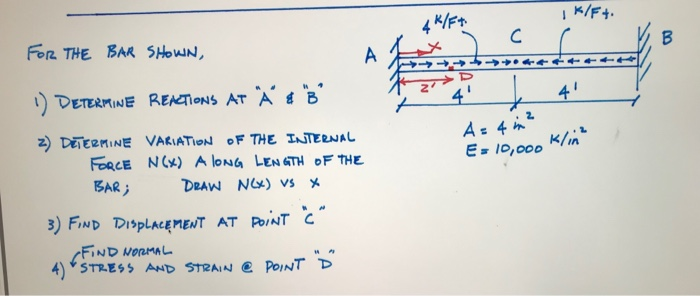 FOR THE BAR SHOWN,
1) DETERMINE REACTIONS AT "A" & "B"
2) DETERMINE VARIATION OF THE INTERNAL
FORCE N(X) ALONG LENGTH OF THE
BAR; DRAW N(X) VS X
3) FIND DISPLACEMENT AT POINT "C"
FIND NORMAL
4) STRESS AND STRAIN @ POINT "D"
4 K/Ft.
1 K/Ft.
X
C
A
B
2'
D
4'
4'
A = 4 in²
E = 10,000 K/in²